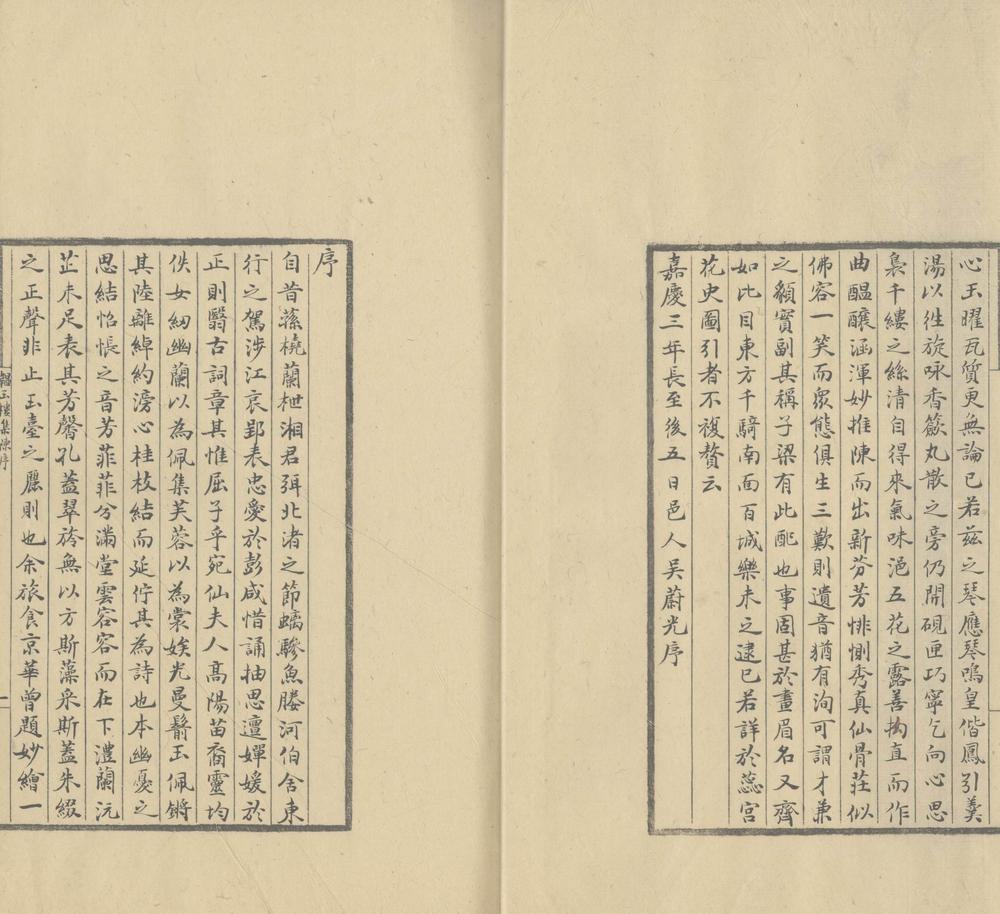 心玉曜瓦質更無論已若茲之琴應琴鳴皇偕鳳引羹
湯以徃旋咏香簸丸散之旁仍開硯匣巧寧乞向心思
裊千縷之絲清自得來氣味浥五花之露善搆直而作
曲醞釀涵渾妙推陳而出新芬芳悱惻秀真仙骨莊似
佛容一笑而眾態俱生三歎則遺音猶有洵可謂才兼
之額實副其稱子梁有此配也事固甚於畫眉名又齊
如比目東方千騎南面百城樂未之逮已若詳於蕊宮
花史圖引者不複贅云
嘉慶三年長至後五日邑人吳蔚光序
序
自昔蓀橈蘭枻湘君弭北渚之節螭驂魚媵河伯舍東
行之駕涉江哀郢表忠愛於彭咸惜誦抽思邅嬋媛於
正則翳古詞章其惟屈子乎宛仙夫人高陽苗裔靈均
佚女紉幽蘭以為佩集芙蓉以為裳娭光曼鬋玉佩鏘
其陸離綽約滂心桂枝結而延佇其為詩也本幽憂之
思結怊悵之音芳菲菲兮滿堂雲容容而在下澧蘭沅
芷未足表其芳馨孔蓋翠旍無以方斯藻采斯蓋朱綴
之正聲非止玉臺之麗則也余旅食京華曾題妙繪一
韞玉樓集 序
一